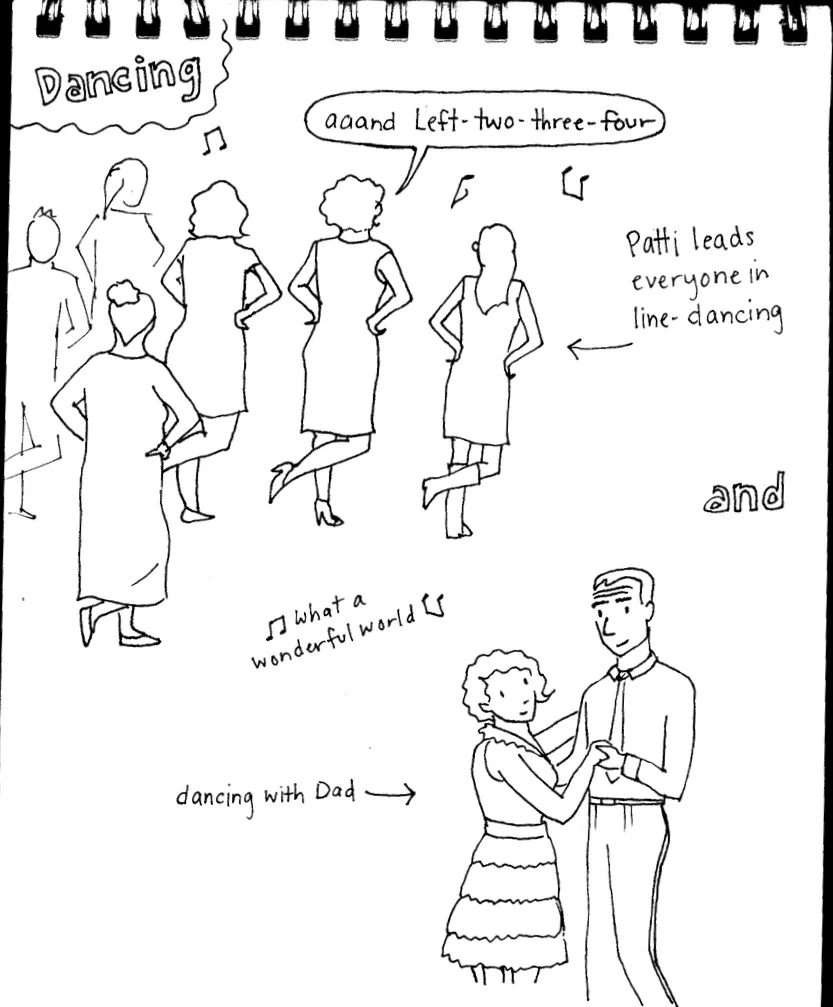 Dancing
aaand Left-two-three-four
Patti leads
everyone in
line-dancing
and
what a
wonderful world
dancing with Dad